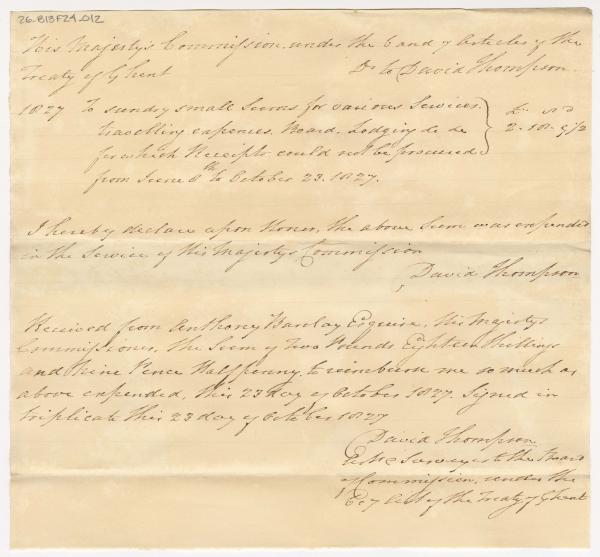 26-B13F24-012
His Majesty's Commission, under the 6 and 7 Articles of the
Treaty of Ghent Dr to David Thompson
1827 To sundry small Sums for various Services. £ s d
travelling expences. Board. Lodging &c &c 2. 18. 9 1/2
for which Receipts could not be procured
from June 8th to October 23. 1827.
I hereby declare upon Honor, the above Sum was expended
in the Service of His Majesty's Commission
David Thompson
Received from Anthony Barclay Esquire, His Majesty's
Commissioner, the Sum of Two Pounds Eighteen Shillings
and Nine Pence Half penny, to reimburse me so much as
above expended, this 23 day of October 1827. Signed in
triplicate this 23 day of October 1827
David Thompson
Surveyor to the Board
of Commission, under the
6 & 7 Art of the Treaty of Ghent